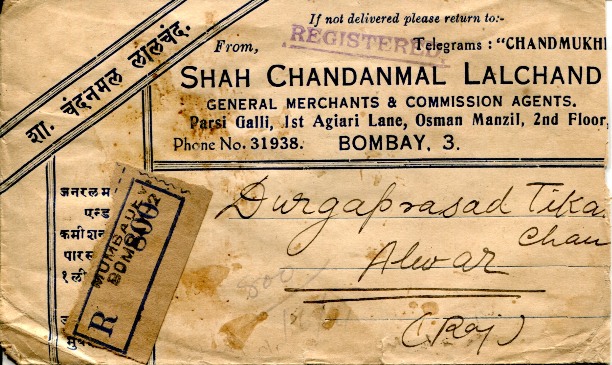 If not delivered please return to:-
REGISTERED.
From,
Telegrams : "CHANDMUKHI
SHAH CHANDANMAL LALCHAND
GENERAL MERCHANTS & COMMISSION AGENTS.
Parsi Galli, 1st Agiari Lane, Osman Manzil, 2nd Floor,
Phone No. 31938. BOMBAY, 3.
शा. चंदनमल लालचंद.
जनरल म
एन्ड
कमीशन
पारस
१ली
R
MUMBADEVI
BOMBAY 2
Durgaprasad Tika
Chan
Alwar
(Raj)